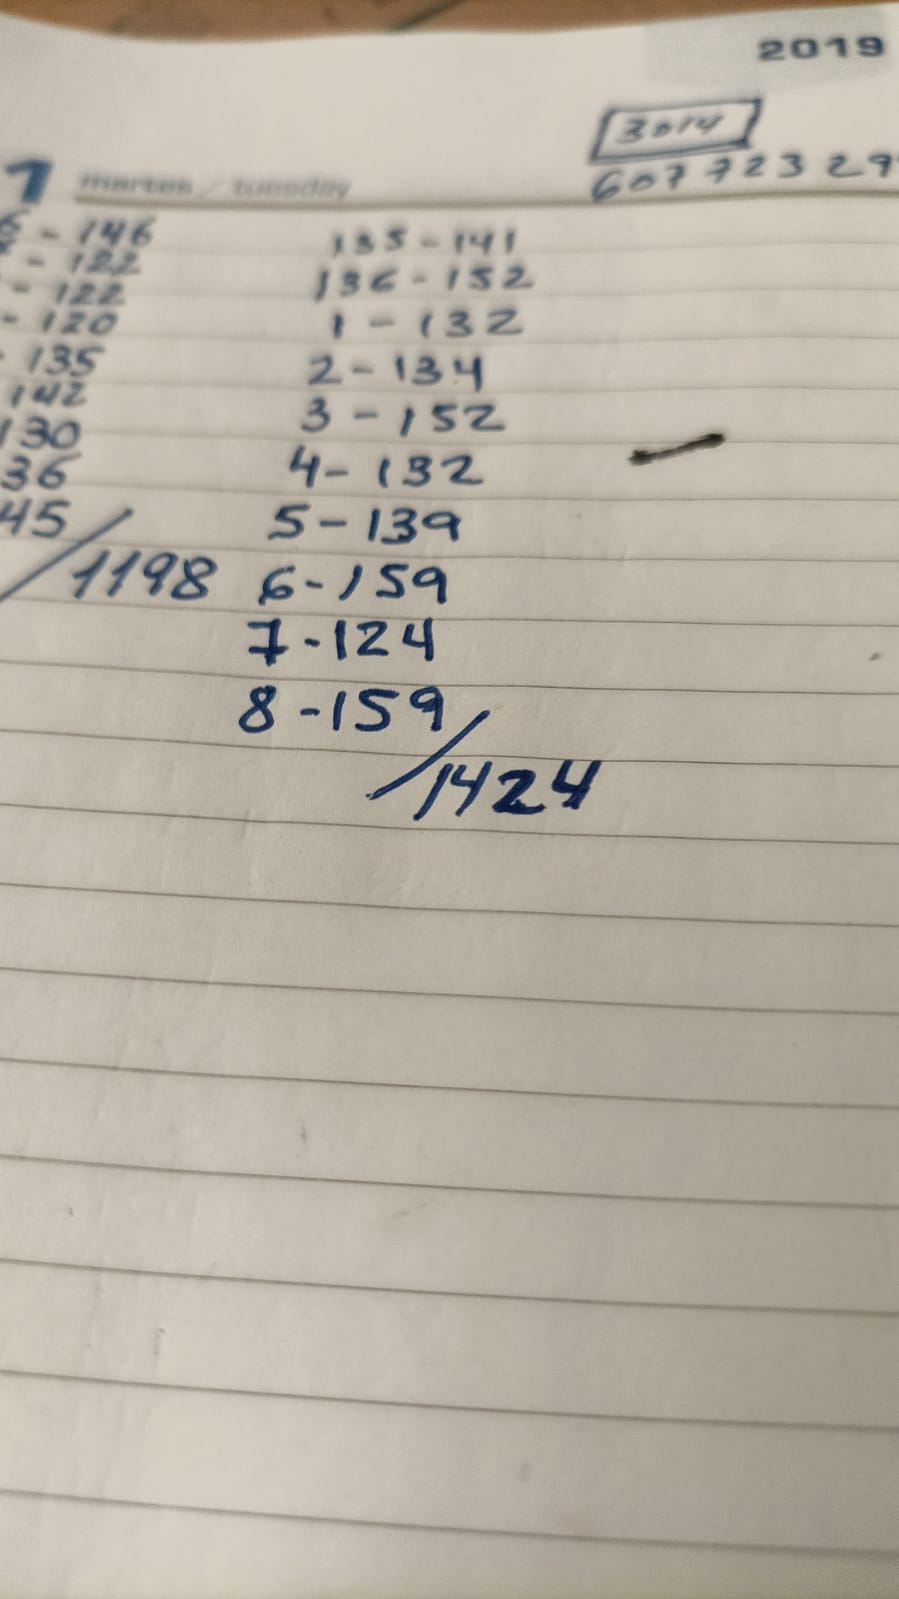 2019
3014
607 723 29
1 martes / tuesday
- 146
- 122
- 122
- 120
- 135
142
130
36
45
/1198
135 - 141
136 - 152
1 - 132
2 - 134
3 - 152
4 - 132
5 - 139
6 - 159
7 - 124
8 - 159
/1424